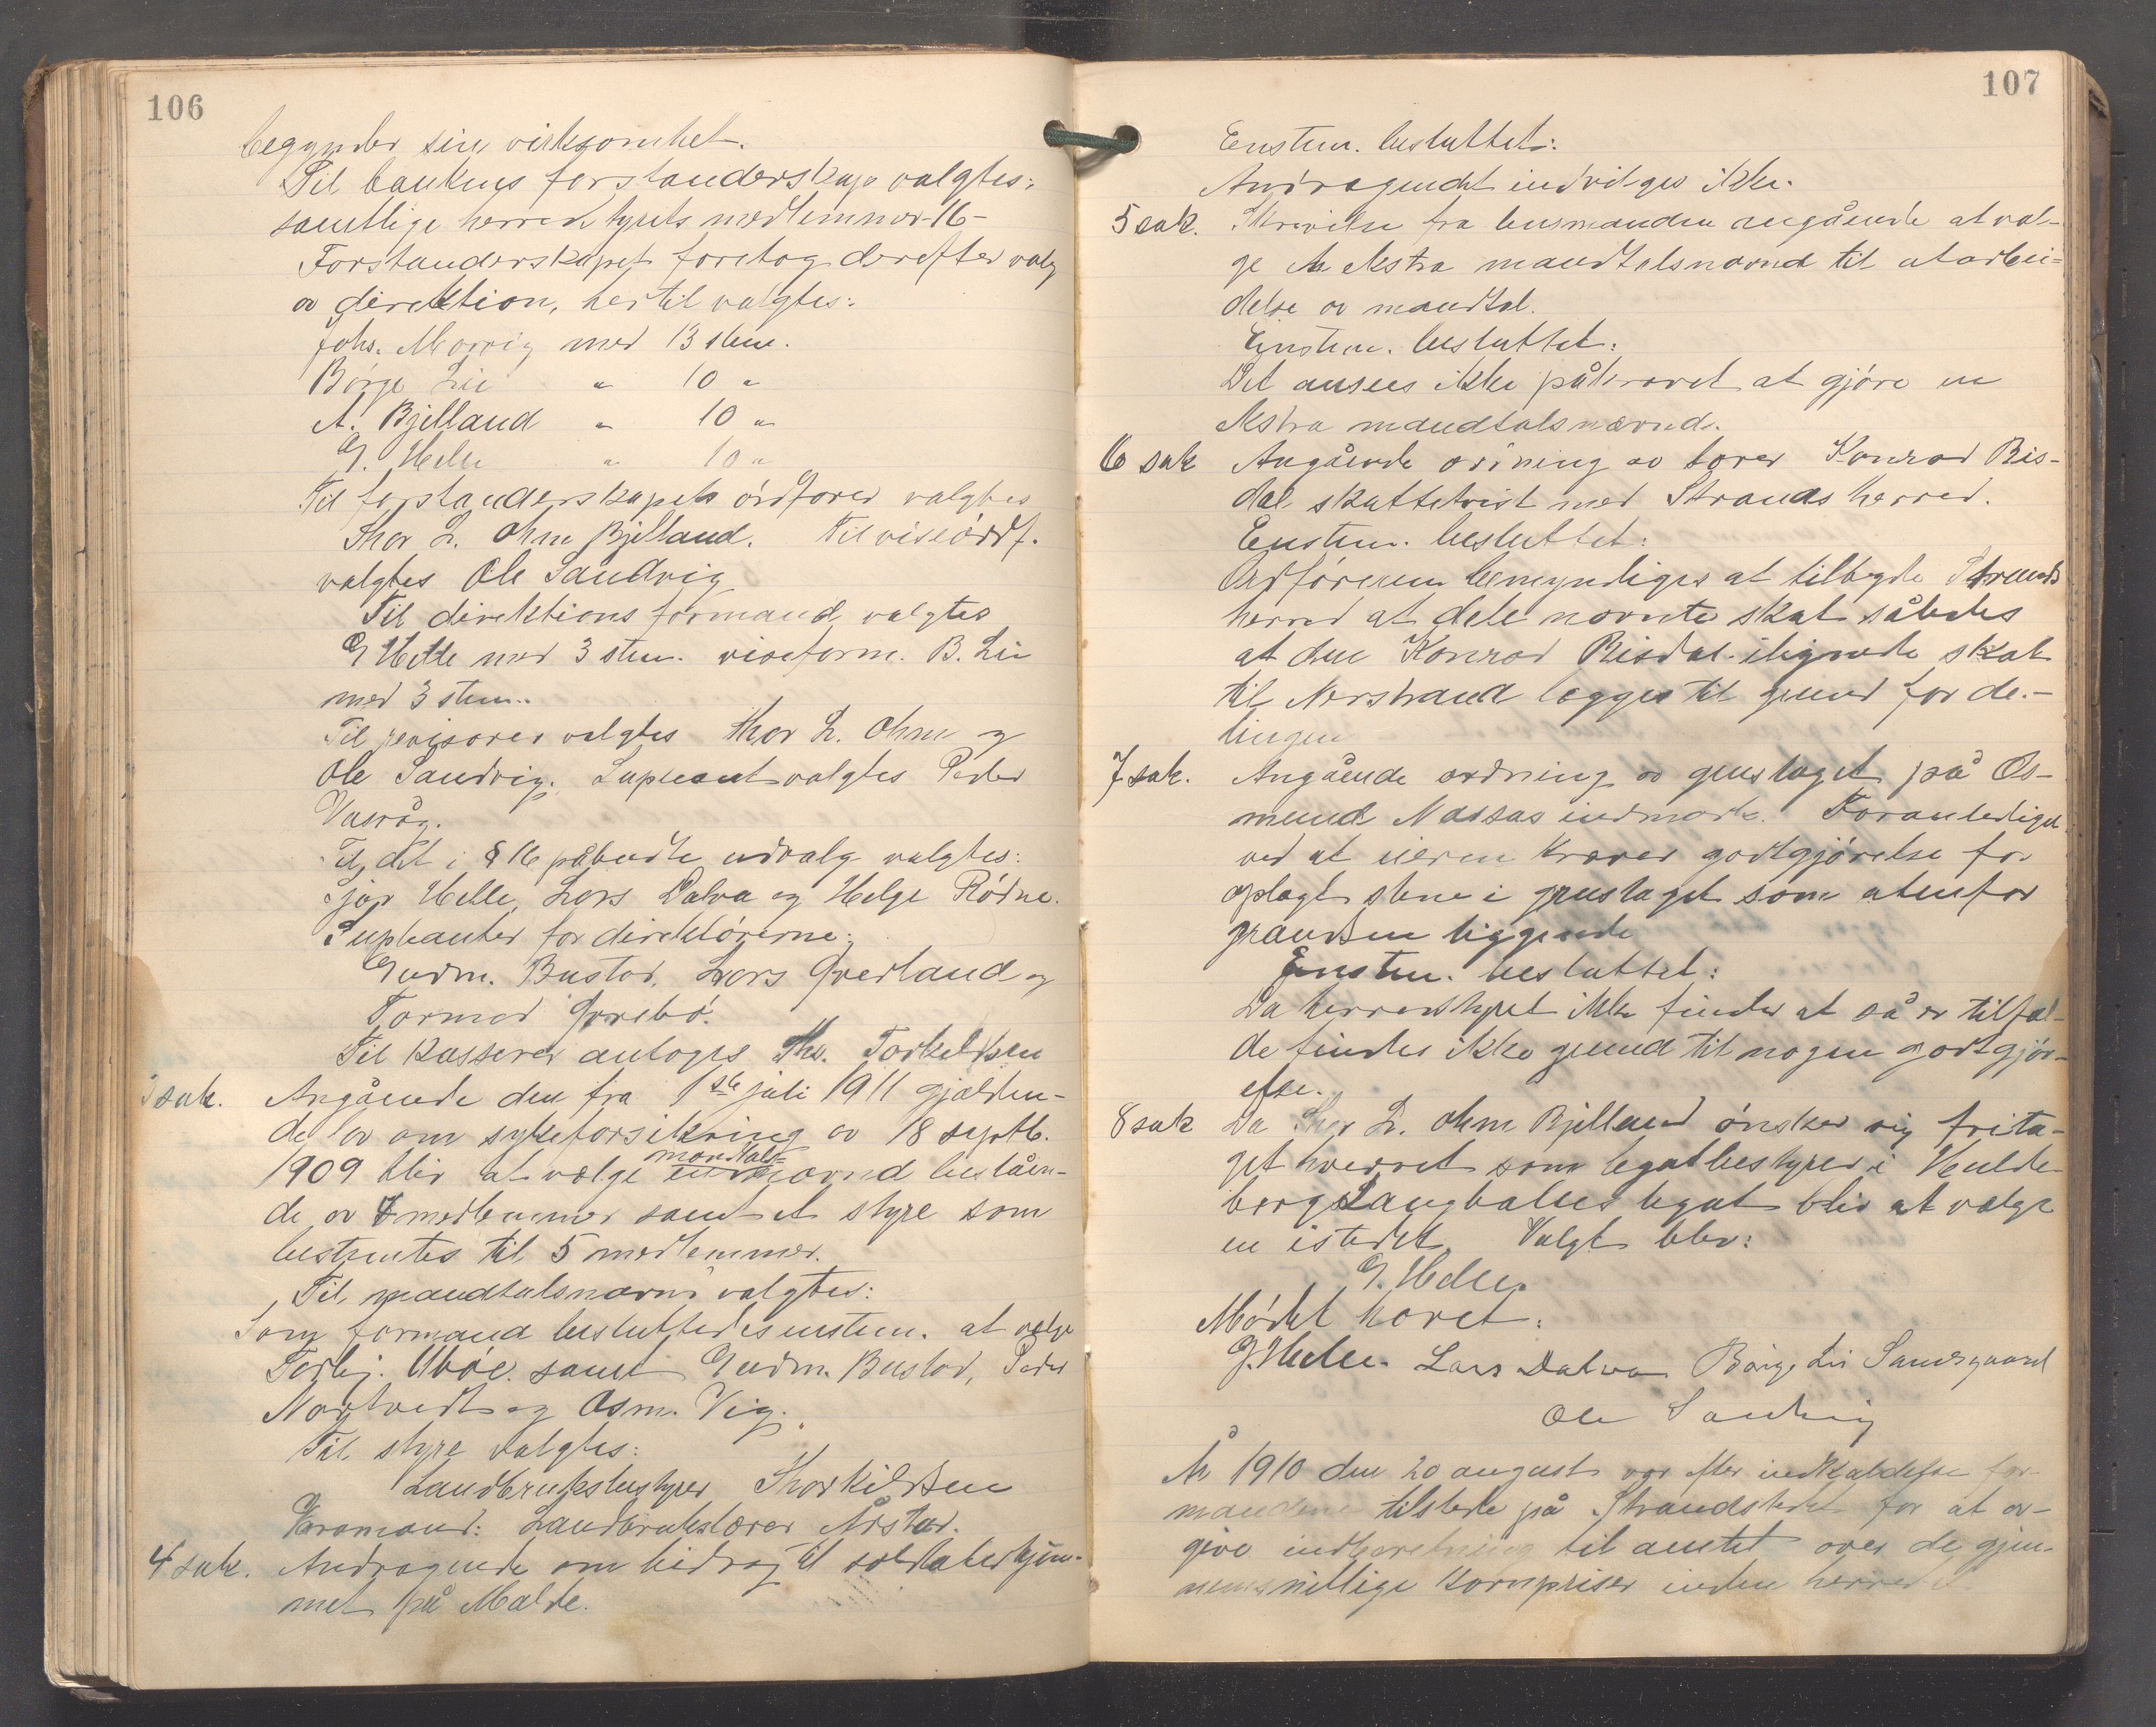 106
begynder sin virksomhet.
Til bankens forstanderskap valgtes:
samtlige herredstyrets medlemmer -16-
Forstanderskapet foretog derefter valg
av direktion, hertil valgtes:
Johs. Morvig med 13 stem.
Børge Lie " 10 "
A. Bjelland " 10 "
G. Helle " 10 "
Til forstanderskapets ordfører valgtes
Thor L. Ohm Bjelland. Til viseordf.
valgtes Ole Sandvig
Til direktionsformand valgtes
G Helle med 3 stem. viseform. B. Lie
med 3 stem..
Til revisorer valgtes Thor L. Ohm og
Ole Sandvig. Supleant valgtes Peder
Vasvåg.
Til det i § 16 påbudte udvalg valgtes:
Helle, Lars Dalva og Helge Rødne.
Supleanter for direktørerne:
Gudm. Bustad, Lars Qverland og
Tormod
Til kasserer antoges Ths. Torkeldsen
3 sak. Angående den fra 1ste juli 1911 gjælden-
de lov om sykeforsikring av 18 septb.
mandtals-
1909 blir at vælge en nævnd beståen-
de av 4 medlemmer samt et styre som
bestemtes til 5 medlemmer.
Til mandtalsnævnd valgtes:
Som formand besluttedes enstem. at vælge
Torbj. Abøe. samt Gudm. Bustad, Peder
Nortvedt og Osm. Vig.
Til styre valgtes:
Landbruksbestyrer Thorkildsen
Varamand: Landbrukslærer Årstad.
4 sak. Andragende om bidrag til soldaterhjem-
met på Malde.
107
Enstem. besluttet:
Andragendet indvilges ikke.
5 sak. Skrivelse fra lensmanden angående at væl-
ge en ekstra mandtalsnævnd til utarbei-
delse av mandtal.
Enstem. besluttet:
Det ansees ikke påkrævet at gjøre en
ekstra mandtalsnævnd.
6 sak Angående ordning av lærer Konrad Ris-
dal skattetvist med Strands herred.
Enstem. besluttet:
Ordføreren bemyndiges at tilbyde Strands
herred at dele nævnte skat således
at den Konrad Risdal ilignede skat
til Nerstrand lægges til grund for de-
lingen
7 sak. Angående ordning av grustaget på Os-
mund Nassas indmark. Foranlediget
ved at eieren kræver godtgjørelse for
oplagt stene i grustaget som utenfor
grændsen liggende
Enstem. besluttet:
Da herredstyret ikke finder at så er tilfæl-
de findes ikke grund til nogen godtgjør-
else.
8 sak Da Thor L. Ohm Bjelland ønsker sig frita-
get hvervet som legatbestyrer i
Langballes legat blir at vælge
en istedet. Valgt blev:
G. Helle.
Mødet hævet.
G. Helle. Lars Dalva Børge Lie Samsgaard
Ole Sandvig
År 1910 den 20 august var efter indkaldelse for-
mændene tilstede på Strandstedet for at av-
give indberetning til amtet over de gjen-
nemsnitlige kornpriser inden herredet